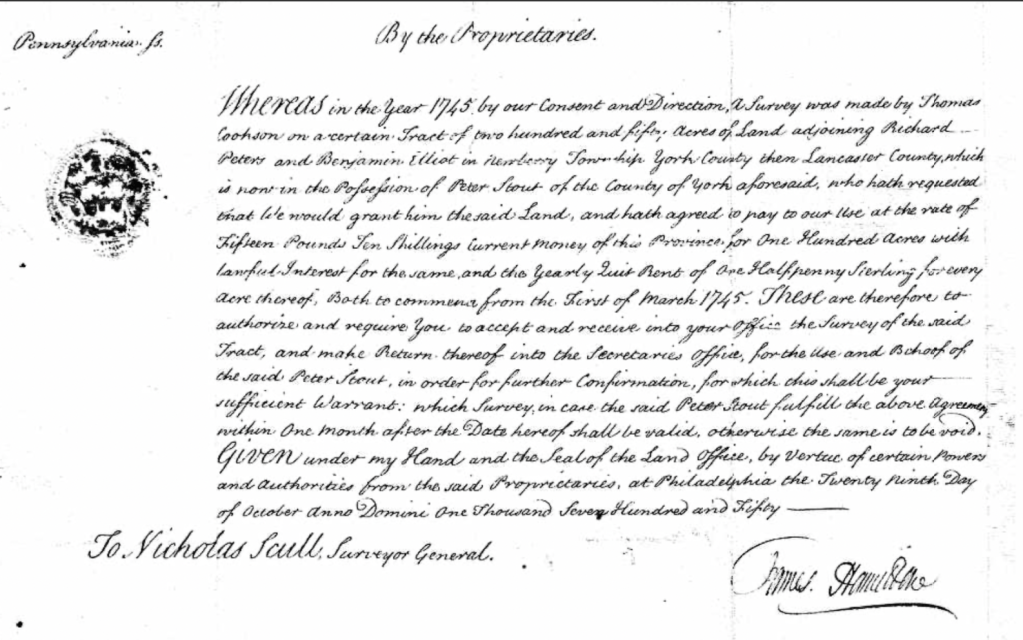 Pennsylvania ss.
By the Proprietaries.
Whereas in the Year 1745 by our Consent and Direction, A Survey was made by Thomas
Cookson on a certain Tract of two hundred and fifty Acres of Land adjoining Richard
Peters and Benjamin Elliot in Newberry Township York County then Lancaster County, which
is now in the Possession of Peter Stout of the County of York aforesaid, who hath requested
that We would grant him the said Land, and hath agreed to pay to our Use at the rate of
Fifteen Pounds Ten Shillings Current Money of this Province for One Hundred Acres with
lawful Interest for the same, and the Yearly Quit Rent of One Halfpenny Sterling for every
Acre thereof, Both to commence from the First of March 1745. These are therefore to
authorize and require You to accept and receive into your Office the Survey of the said
Tract, and make Return thereof into the Secretaries Office, for the Use and Behoof of
the said Peter Stout, in order for further Confirmation, for which this shall be your
sufficient Warrant: which Survey, in case the said Peter Stout fulfill the above Agreement
within One Month after the Date hereof shall be valid, otherwise the same is to be void.
Given under my Hand and the Seal of the Land Office, by Vertue of certain Powers
and Authorities from the said Proprietaries, at Philadelphia the Twenty Ninth Day
of October Anno Domini One Thousand Seven Hundred and Fifty
To Nicholas Scull, Surveyor General.
James Hamilton